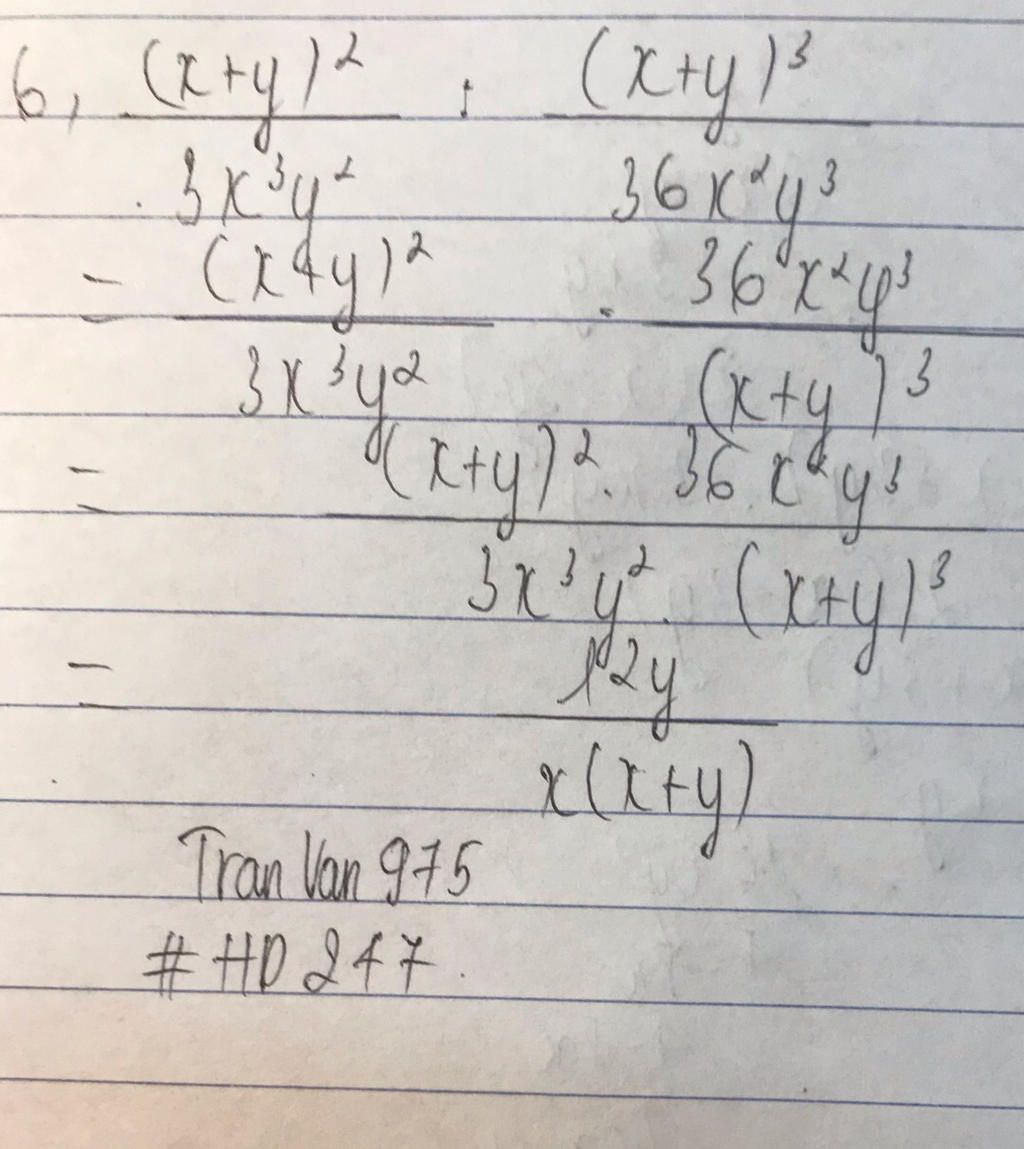 6, (x+y)² : (x+y)³
3x³y² 36x²y³
= (x+y)² . 36x²y³
3x³y² (x+y)³
= (x+y)² . 36x²y³
3x³y² . (x+y)³
= 12y
x(x+y)
Tran Van 975
# HD 247.